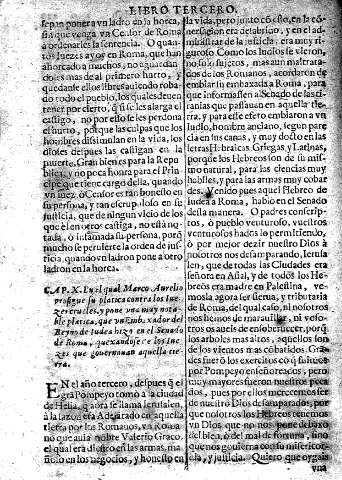 LIBRO TERCERO.
sepan poner a vn ladron en la horca,
sin que venga vn Censor de Roma
a ordenarles la sentencia. O quan-
tos Iuezes ay oy en Roma, que han
ahorcado a muchos, no aguardan-
do es mas de al primero hurto, y
quedanse ellos libres auiendo roba-
do todo el pueblo, los quales deuen
tener por cierto, q̃ si se les alarga el
castigo, no por esso se les perdona
el hurto, porque las culpas que los
hombres dissimulan en la vida, los
dioses despues las castigan en la
muerte. Gran bien es para la Repu-
blica, y no poca honra para el Prin-
cipe que tiene cargo della, quando
vn iuez, ò Censor es tan honesto en
su persona, y tan escrupuloso en su
justicia, que de ningun vicio de los
que è en otros castiga, no està no-
tada, ò infamada su persona, porq̃
mucho se peruierte la orden de ju-
sticia, quando vn ladron pone a otro
ladron en la horca.
CAP. X. En el qual Marco Aurelio
prosigue su platica contra los Iue-
zes crueles, y pone vna muy nota-
ble platica, que vn Emb xador del
Reyno de Iudea hizo en el Senado
de Roma, quexandose de los Iue-
zes que gouernauan aquella tie-
rra.
EN el año tercero, despues q̃ el
grã Pompeyo tomò a la ciudad
de Helia, q̃ aora se llama Ierusalen,
à la sazon era Adelantado en aquella
tierra por los Romanos, vn Roma
no que auia nõbre Valerio Graco,
el qual era diestro en las armas, ma-
ñoso en los negocios, y honesto en
la vida, pero junto cõ esso, en la cõ-
uersacion era desabrido, y en el ad-
ministrar de la justicia, era muy ri-
guroso. Como los Iudios se vieron,
no solo sujetos, mas aun maltrata-
dos de los Romanos, acordaron de
embiar su embaxada a Roma, para
que informassen a Senado de las ti-
ranias que passauan en aquella tie-
rra, y para este efeto embiaron a vn
Iudio, hombre anciano, segun pare
cia en sus canas, y muy docto en las
letras Hebraicas, Griegas, y Latinas,
porque los Hebreos son de su mis-
mo natural, para las ciencias muy
habiles, y para las armas muy cobar
des. Y venido pues aquel Hebreo de
Iudea a Roma, habiò en el Senado
desta manera. O padres conscrip-
tos, ò pueblo venturoso, vuestros
venturosos hados lo permitiendo,
ò por mejor dezir nuestro Dios à
nosotros nos desamparando, Ierusa-
len, que de todas las Ciudades era
señora en Asia, y de todos los He-
breos era madre en Palestina, ve-
mosla agora ser sierua, y tributaria
de Roma, del qual caso, ni nosotros
nos hemos de marauillar, ni voso-
tros os aueis de ensoberuecer, porq̃
los arboles mas altos, aquellos son
de los vientos mas cobatidos. Grã-
des fuerõ los exercitos cõ q̃ fuimos
por Pompeyo enseñoreados, pero
muy mayores fueron nuestros peca
dos, pues por ellos merecimos ser
de nuestro Dios desamparados, por
que nosotros los Hebreos tenemos
vn Dios que no nos pone debaxo
del bien, ò del mal de fortuna, sino
que nos gouierna con su misericor-
dia, y justicia. Quiero que oygais
vna